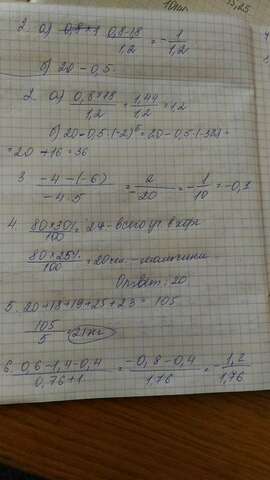 10 мин
2. а) 0,8-1,8 / 1,2 = - 1 / 1,2
б) 20 - 0,5.
2. а) 0,8×1,8 / 1,2 = 1,44 / 1,2 = 1,2
б) 20 - 0,5 · (-2)⁵ = 20 - 0,5 · (-32) =
= 20 + 16 = 36
3. -4 - (-6) / -4·5 = 2 / -20 = - 1 / 10 = -0,1
4. 80×30% / 100 = 24 - всего
80×25% / 100 = 20 -
Ответ: 20
5. 20+18+19+25+23 = 105
105 / 5 = 21 кг
6. 0,6-1,4-0,4 / 0,76+1 = -0,8-0,4 / 1,76 = - 1,2 / 1,76